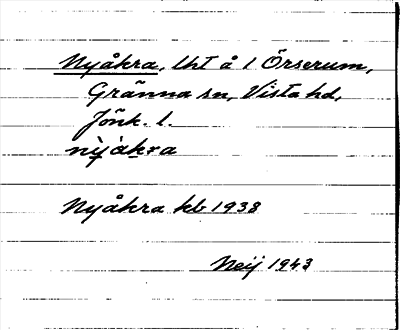 Nyåkra, lht å 1 Örserum,
Gränna sn, Vista hd,
Jönk. l.
nỳåkra
Nyåkra kb 1938
Neij 1943